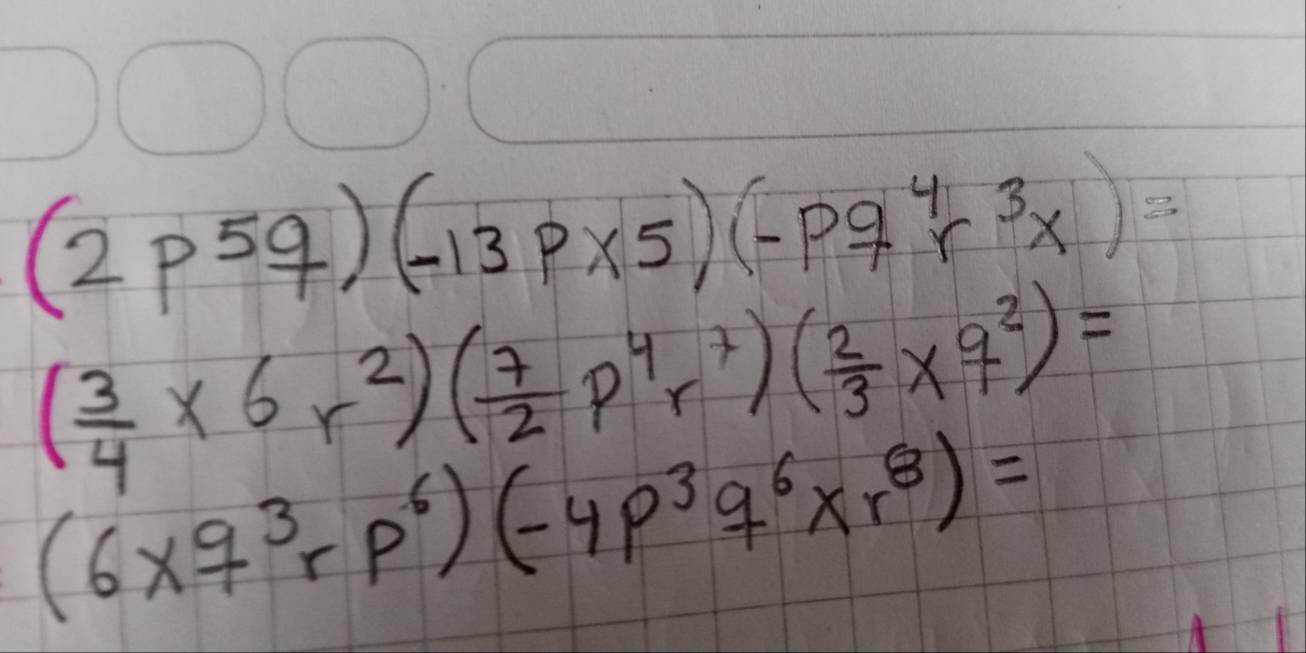 (2p⁵q)(-13px5)(-pq⁴r³x)=
(3/4 x6r²)(7/2 p⁴r⁷)(2/3 xq²)=
(6xq³rp⁶)(-4p³q⁶xr⁸)=